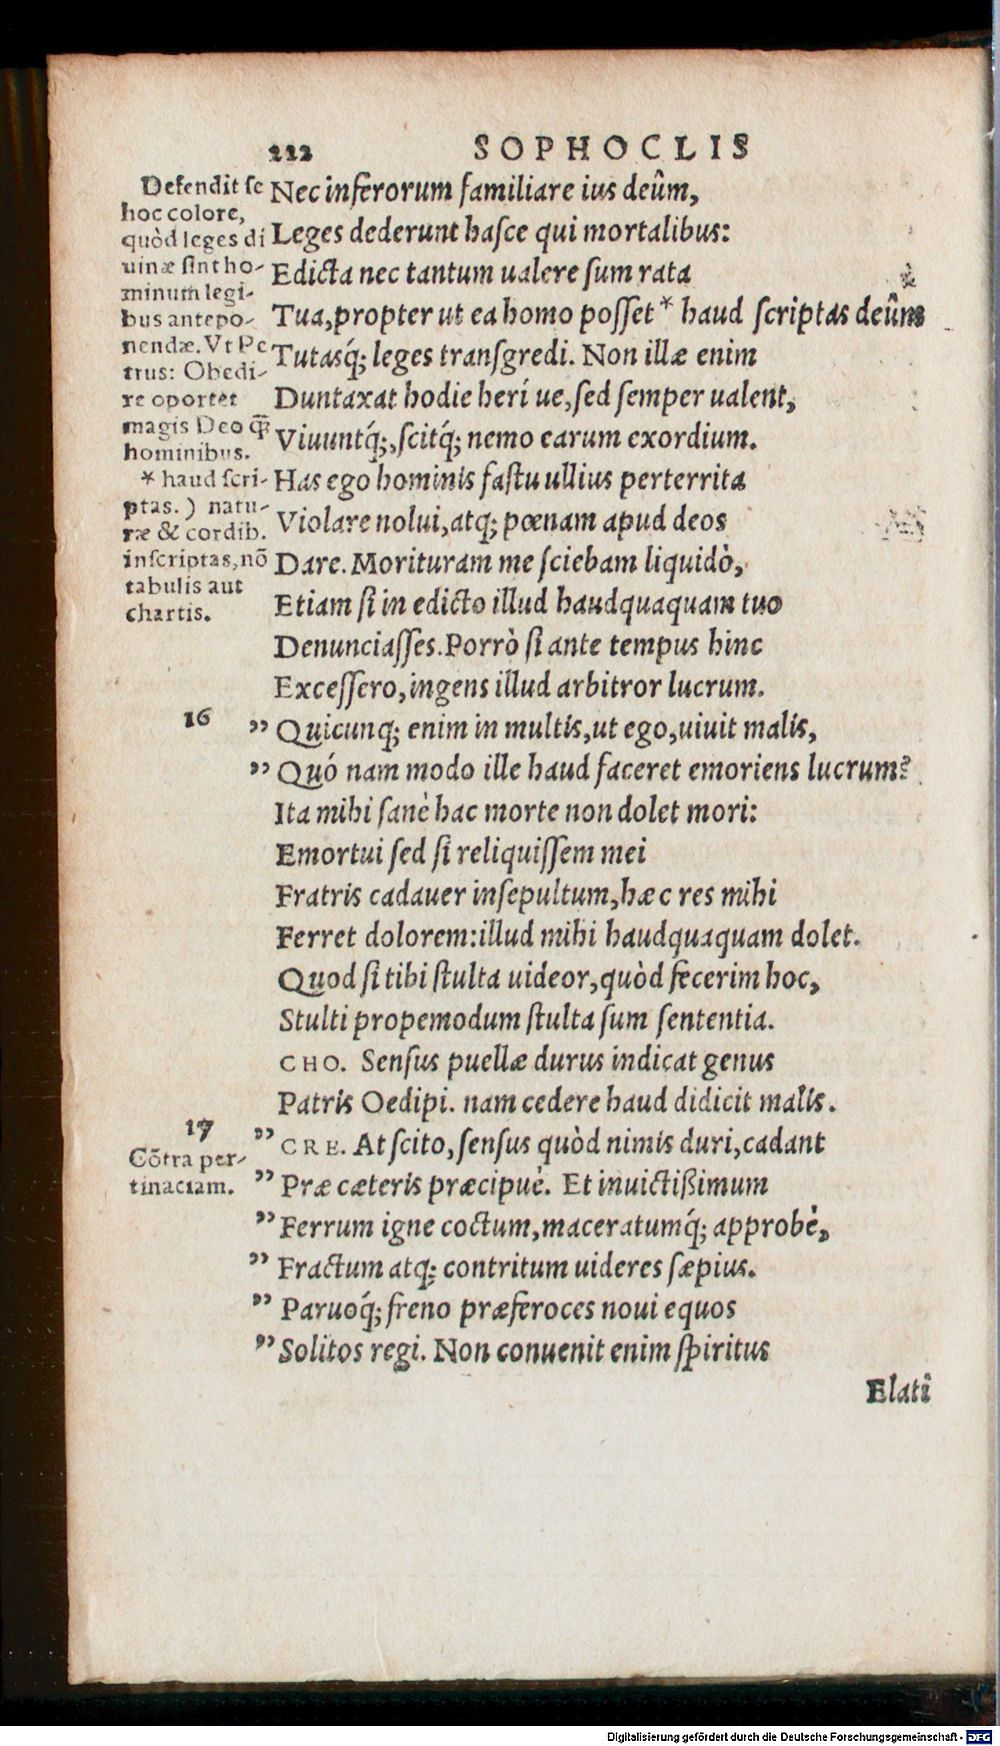 222 SOPHOCLIS
Defendit se
hoc colore,
quòd leges di
uinæ sint ho-
minum legi-
bus antepo-
nendæ. Vt Pe
trus: Obedi-
re oportet
magis Deo q̃
hominibus.
* haud scri-
ptas.) natu-
ræ & cordib.
inscriptas, nō
tabulis aut
chartis.
Nec inferorum familiare ius deûm,
Leges dederunt hasce qui mortalibus:
Edicta nec tantum ualere sum rata
Tua, propter ut ea homo posset * haud scriptas deûm
Tutasq́; leges transgredi. Non illæ enim
Duntaxat hodie heri ue, sed semper ualent,
Viuuntq́;, scitq́; nemo earum exordium.
Has ego hominis fastu ullius perterrita
Violare nolui, atq; pœnam apud deos
Dare. Morituram me sciebam liquidò,
Etiam si in edicto illud haudquaquam tuo
Denunciasses. Porrò si ante tempus hinc
Excessero, ingens illud arbitror lucrum.
16
” Quicunq; enim in multis, ut ego, uiuit malis,
” Quó nam modo ille haud faceret emoriens lucrum?
Ita mihi sanè hac morte non dolet mori:
Emortui sed si reliquissem mei
Fratris cadauer insepultum, hæc res mihi
Ferret dolorem: illud mihi haudquaquam dolet.
Quod si tibi stulta uideor, quòd fecerim hoc,
Stulti propemodum stulta sum sententia.
CHO. Sensus puellæ durus indicat genus
Patris Oedipi. nam cedere haud didicit malis.
17
Cōtra per-
tinaciam.
” CRE. At scito, sensus quòd nimis duri, cadant
” Præ cæteris præcipuè. Et inuictißimum
” Ferrum igne coctum, maceratumq́; approbè,
” Fractum atq; contritum uideres sæpius.
” Paruoq́; freno præferoces noui equos
” Solitos regi. Non conuenit enim spiritus
Elati
Digitalisierung gefördert durch die Deutsche Forschungsgemeinschaft - DFG